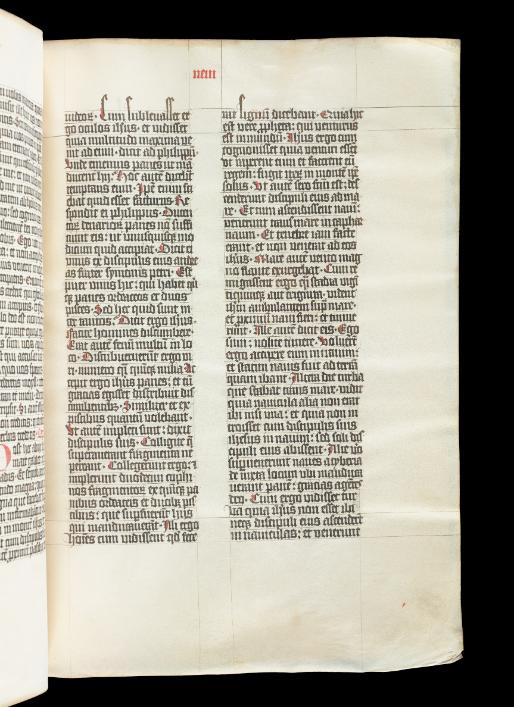 ueni
iudeoꝝ. Cum subleuasset er
go oculos ihsus. et vidisset
quia multitudo maxima ve
nit ad eum. dicit ad philippū.
Unde ememus panes ut mā
ducent hij. Hoc autē dicebat
temptans eum. Ipse enim sci
ebat quid esset facturus. Re
spondit ei philippus. Ducen
torū denariorū panes nō suffi
ciunt eis: ut vnusquisqꝫ mo
dicum quid accipiat. Dicit ei
vnus ex discipulis eius andre
as frater symonis petri. Est
puer vnus hic: qui habet qn̄
qꝫ panes ordeaceos et duos
pisces. Sed hec quid sunt in
ter tantos. Dicit ergo ihsus.
Facite homines discumbere.
Erat autē fenū multū in lo
co. Discubuerunt ergo vi
ri. numero q̄si qn̄qꝫ milia. Ac
cepit ergo ihsus panes: et cū
gracias egisset distribuit dis
cumbentibꝫ. Similiter et ex
piscibus quantū volebant.
Ut autē impleti sunt: dixit
discipulis suis. Colligite q̄
superauerunt fragmenta ne
pereant. Collegerunt ergo: ⁊
impleuerunt duodecim cophi
nos fragmentoꝝ ex qn̄qꝫ pa
nibus ordeaceis et duobꝫ pis
cibus: que suꝑfuerūt hijs
qui manducauerāt. Illi ergo
hoīes cum vidissent qd̄ fece
rat signū dicebant. Quia hic
est vere ꝓpheta: qui venturus
est in mundū. Ihsus ergo cum
cognouisset quia venturi essēt
ut raperent eum et facerent eū
regem: fugit iteꝝ in montē ip̄e
solus. Ut autē sero fcm̄ est: des
cenderunt discipuli eius ad ma
re. Et cum ascendissent nauī:
venerunt trans mare in caphar
naum. Et tenebre iam facte
erant. et non venerat ad eos
ihsus. Mare autē vento mag
no flante exurgebat. Cum re
migassent ergo q̄si stadia vigī
tiquinqꝫ aut triginta. vidēt
ihm̄ ambulantem suꝑ mare.
et proximū naui fieri: et timue
runt. Ille autē dicit eis. Ego
sum: nolite timere. Voluerūt
ergo accipere eum in nauim:
et statim nauis fuit ad terrā
quam ibant. Altera die turba
que stabat trans mare. vidit
quia nauicula alia non erat
ibi nisi vna: et quia non in
troisset cum discipulis suis
ihesus in nauim: sed soli dis
cipuli eius abissent. Alie vō
superuenerunt naues a tyberia
de iuxta locum vbi manduca
uerant panē: gracias agētē
deo. Cum ergo vidisset tur
ba quia ihsus non esset ibi
neqꝫ discipuli eius ascenderūt
in nauiculas: et venerunt